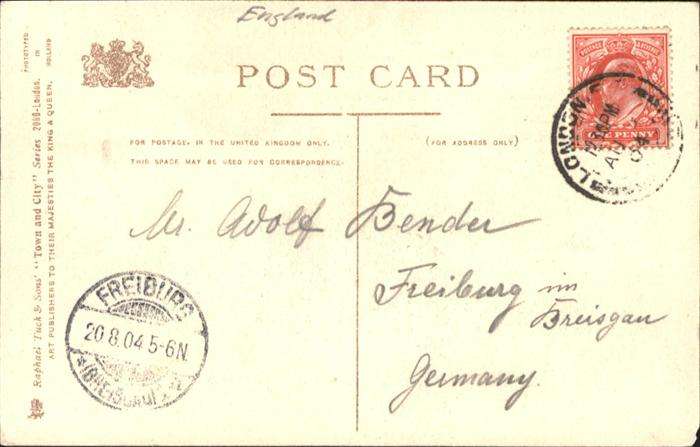 England
POST CARD
PHOTOTYPED
IN
HOLLAND
Raphael Tuck & Sons' "Town and City" Series 2060-London.
ART PUBLISHERS TO THEIR MAJESTIES THE KING & QUEEN.
FOR POSTAGE, IN THE UNITED KINGDOM ONLY.
THIS SPACE MAY BE USED FOR CORRESPONDENCE.
(FOR ADDRESS ONLY)
POSTAGE & REVENUE
ONE PENNY
LONDON
PM
AU
04
Mr. Adolf Bender
Freiburg im
Breisgau
Germany.
FREIBURG
20 8.04 5-6N.
(BREISGAU)